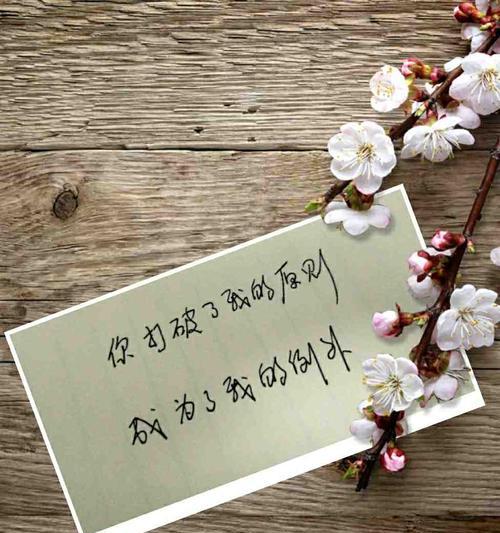 你打破了我的原则
成为了我的例外